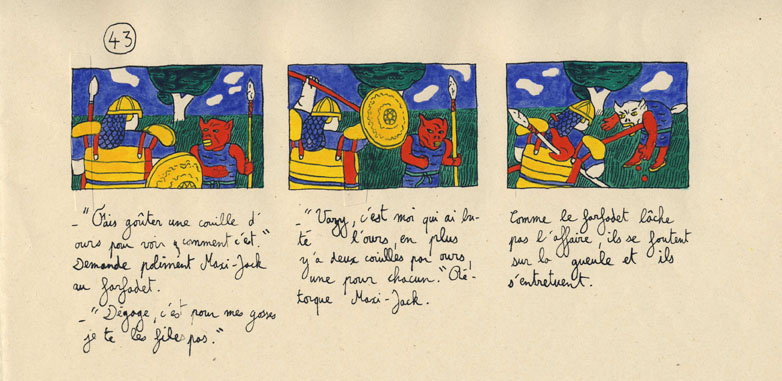 43
_"Fais goûter une couille d'
ours pour voir comment c'est."
Demande poliment Maxi-Jack
au farfadet.
_"Dégage, c'est pour mes gosses
je te les file pas."
_"Vazy, c'est moi qui ai bu-
té l'ours, en plus
y'a deux couilles par ours,
une pour chacun." Ré-
torque Maxi-Jack.
Comme le farfadet lâche
pas l'affaire, ils se foutent
sur la gueule et ils
s'entretuent.